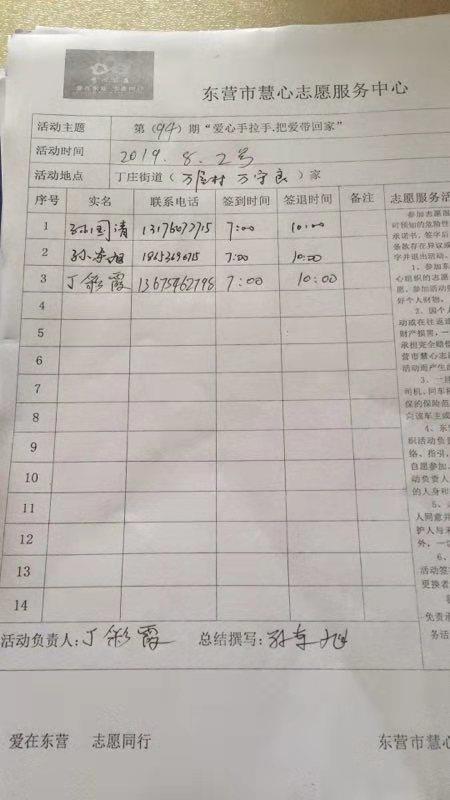 爱在东营 志愿同行
东营市慧心志愿服务中心
活动主题 第（94）期“爱心手拉手,把爱带回家”
活动时间 2019.8.2号
活动地点 丁庄街道（万全村 万守良）家
序号 实名 联系电话 签到时间 签退时间 备注 志愿服务活
1 孙国清 7:00 10:00
2 孙东旭 7:00 10:00
3 丁彩霞 13675462798 7:00 10:00
4
5
6
7
8
9
10
11
12
13
14
参加志愿服
时预知的危险性
承诺书，签字后
务故存在异议或
字并退出活动。
1、参加东
心组织的志愿
愿、参加活动
好个人财物。
2、因个人
动或在往返途
财产损害，一
承担完全赔偿
营市慧心志愿
活动而产生的
司机、同车和
保的保险范
向该车主或
4、东营
织活动负责
络、指引、
自愿参加、
动负责人
的人身和
人同意并
护人与未
外，一切
6、
活动签
更换者
免责承
务活
活动负责人:丁彩霞 总结撰写:孙东旭
爱在东营 志愿同行
东营市慧心